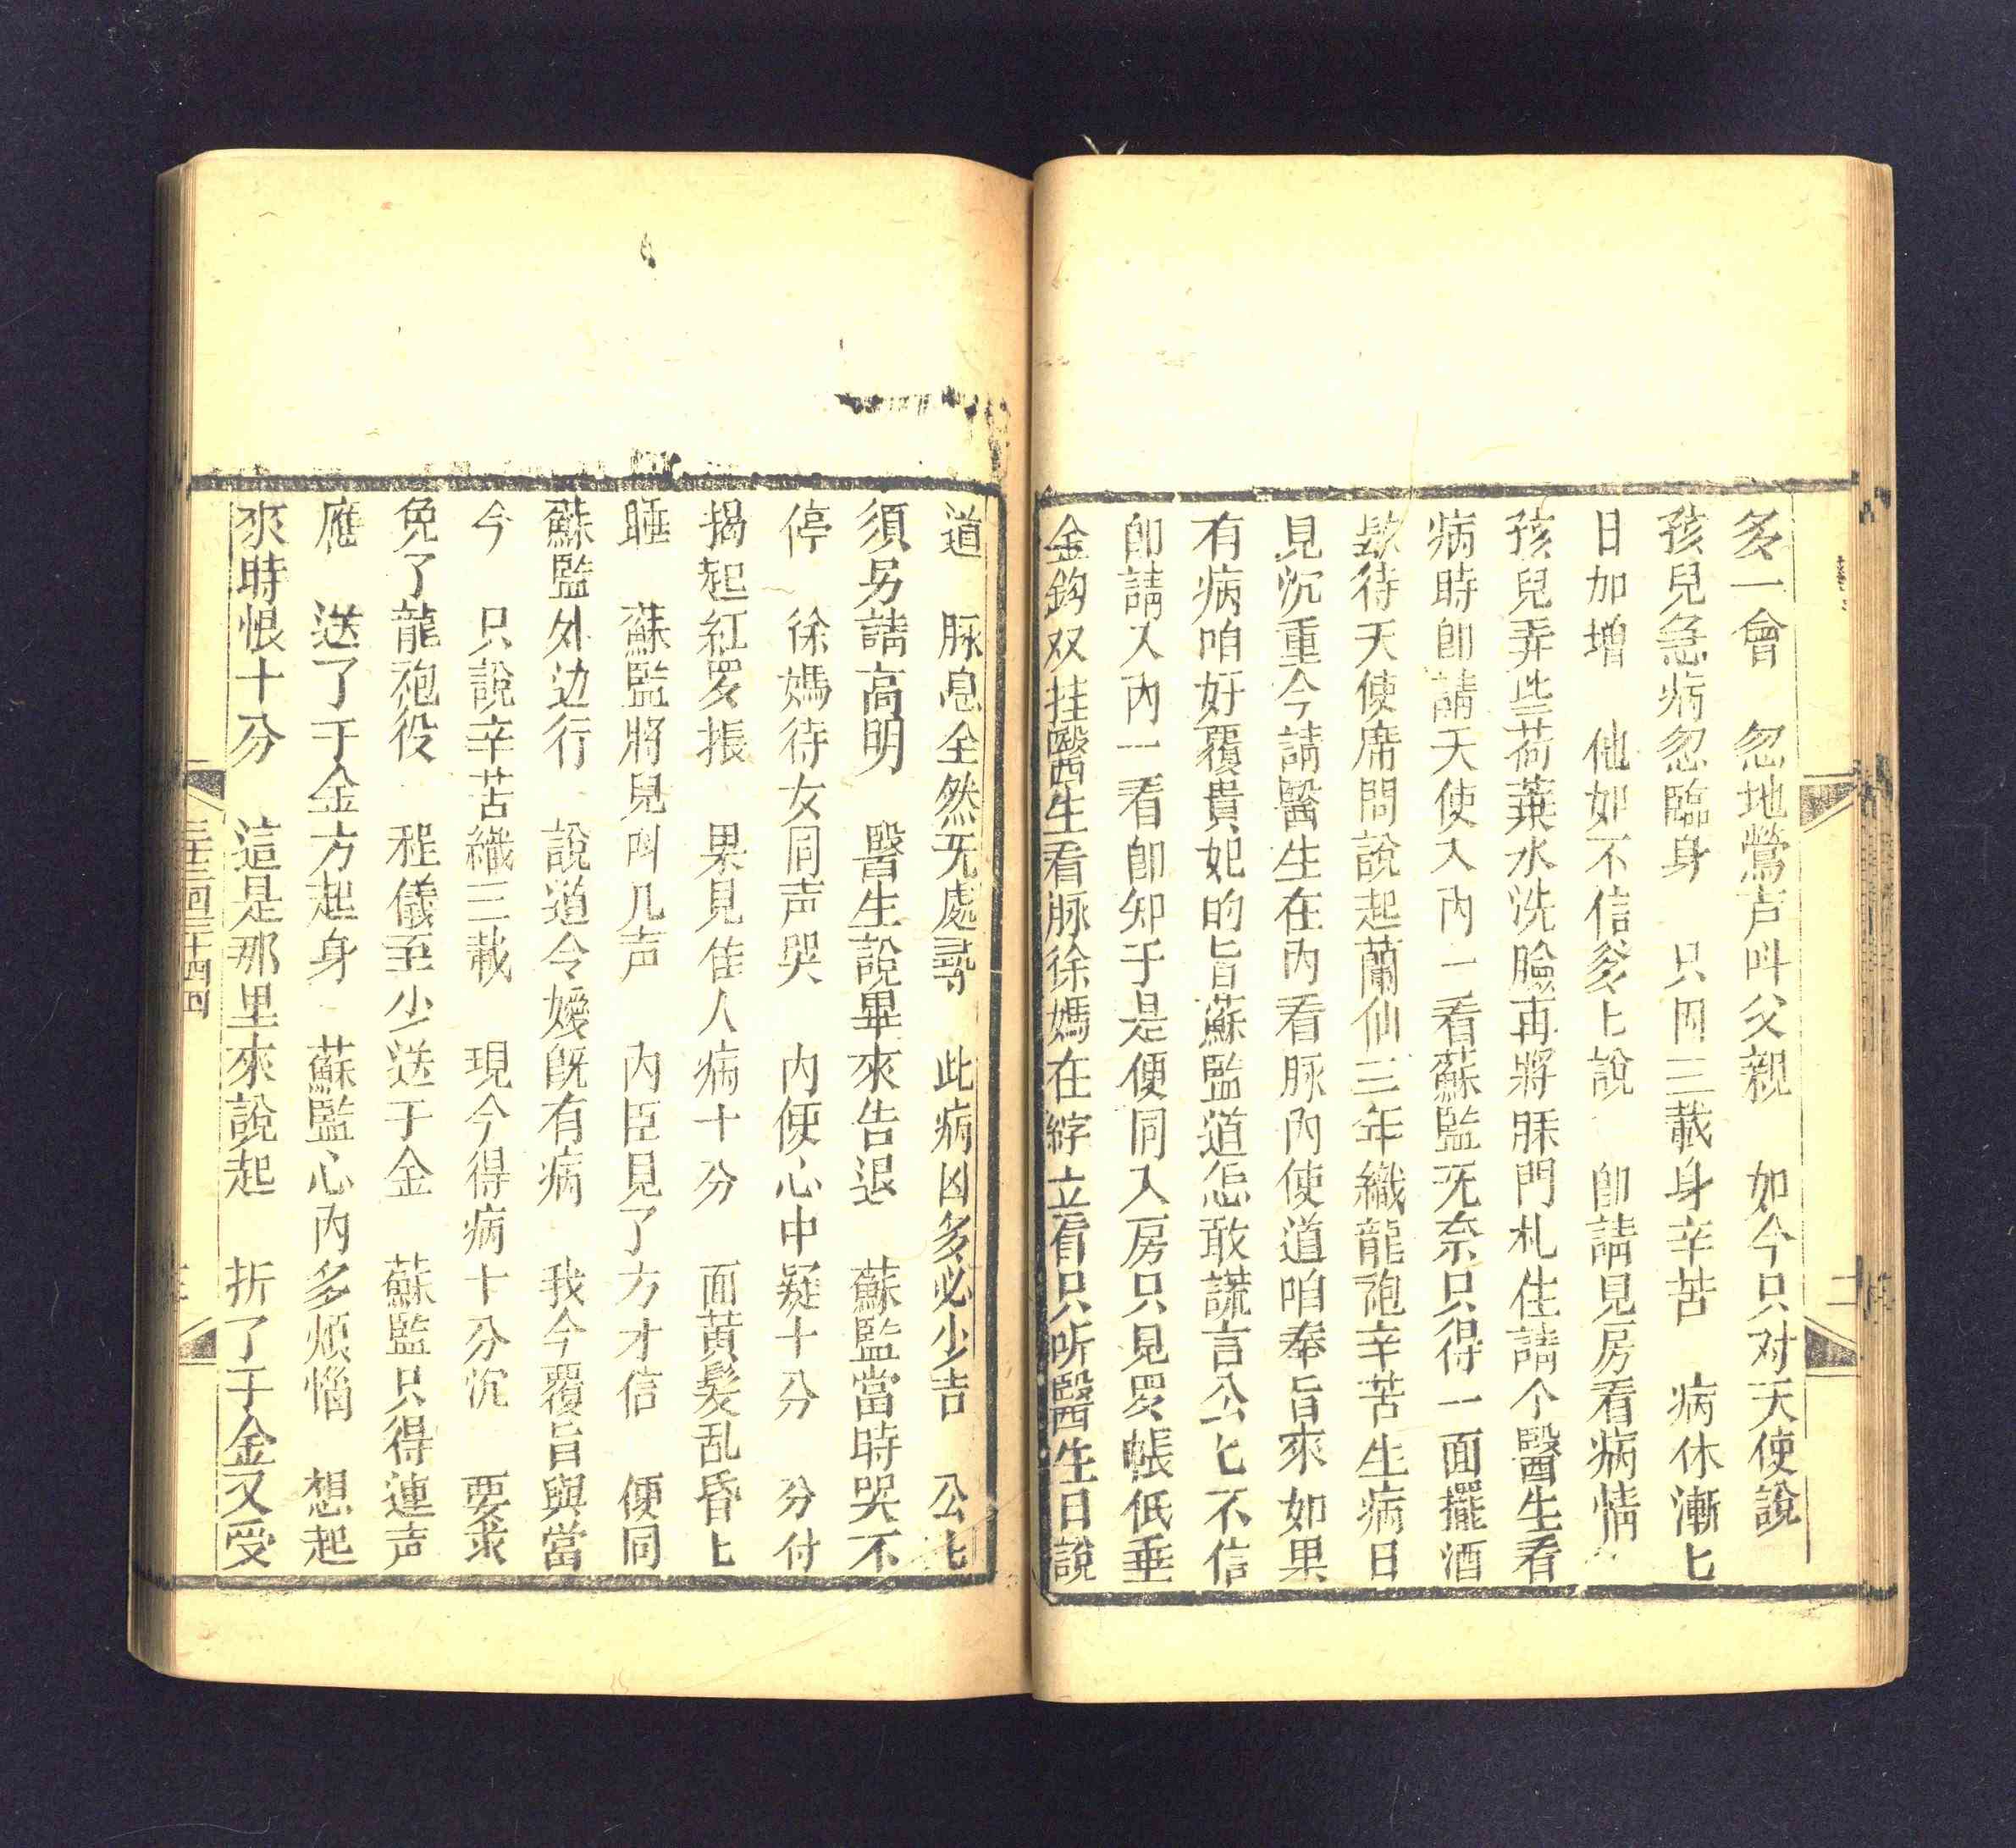 多一會　忽地鶯声呌父親　如今只对天使說
孩兒急病忽臨身　只因三載身辛苦　病休漸匕
日加增　他如不信爹匕說　卽請見房看病情
孩兒弄些荷葉水洗臉再將脉門札住請个醫生看
病時卽請天使入內一看蘇監旡奈只得一面擺酒
欵待天使席間說起蘭仙三年織龍砲辛苦生病日
見沉重今請醫生在內看脉內使道咱奉旨來如果
有病咱好覆貴妃的旨蘇監道怎敢謊言公匕不信
卽請入內一看卽知于是便同入房只見罗帳低垂
金鈎双挂醫生看脉徐媽在綍立看只听醫生日說
道　脉息全然旡處尋　此病凶多必少吉　公匕
須另請高明　醫生說畢來告退　蘇監當時哭不
停　徐媽待女同声哭　內便心中疑十分　分付
揭起紅罗振　果見佳人病十分　面黃髮乱昏上
睡　蘇監將兒叫几声　內臣見了方才信　便同
蘇監外边行　說道令嫒旣有病　我今覆旨與當
今　只說辛苦織三載　現今得病十分沉　要求
免了龍砲役　程儀至少送于金　蘇監只得連声
應　送了于金方起身　蘇監心內多煩惱　想起
來時恨十分　這是那里來說起　折了于金又受